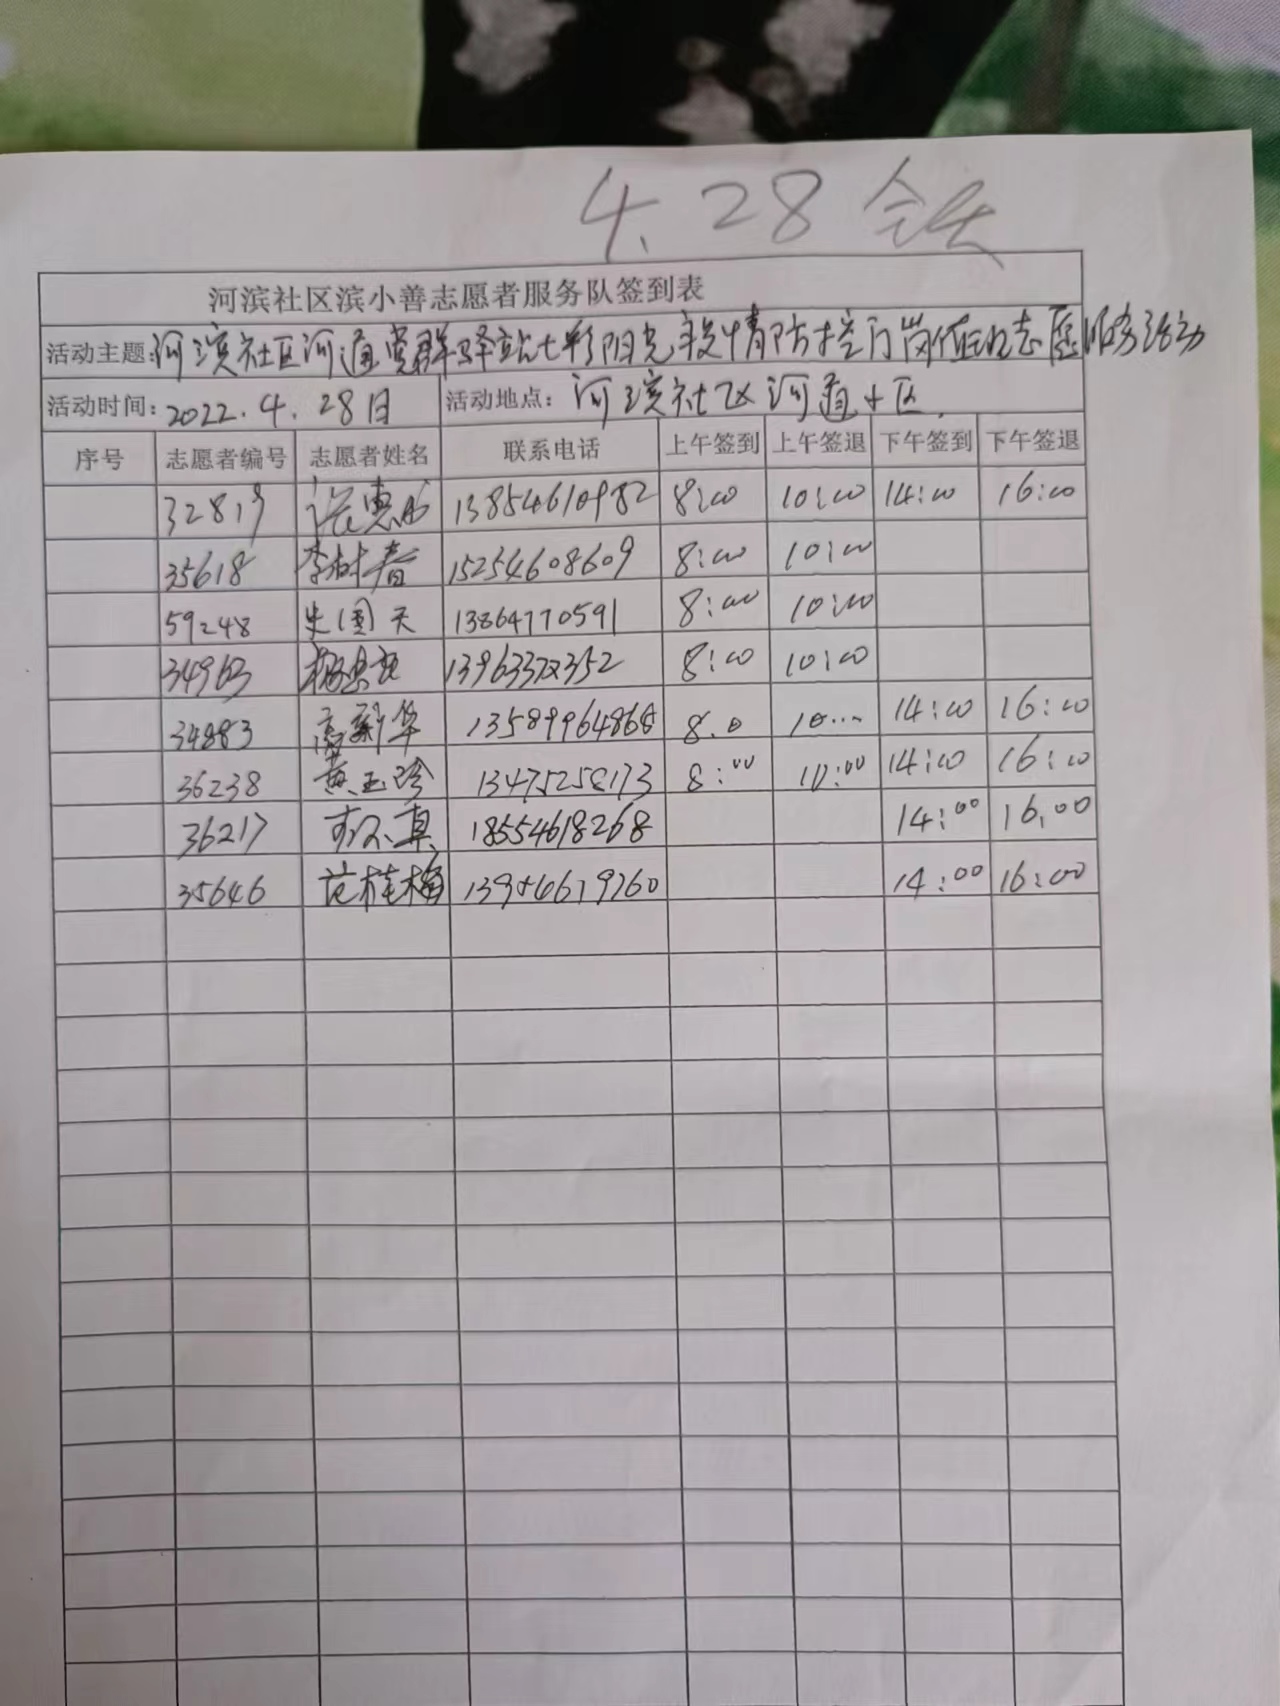 4.28 全天
河滨社区滨小善志愿者服务队签到表
活动主题:河滨社区河道党群驿站七彩阳光疫情防控门岗值班志愿服务活动
活动时间: 2022.4.28日 活动地点: 河滨社区河道小区.
序号 志愿者编号 志愿者姓名 联系电话 上午签到 上午签退 下午签到 下午签退
32819 13854610982 8:00 10:00 14:00 16:00
35618 李树春 15254608609 8:00 10:00
59248 史国天 13864770591 8:00 10:00
34963 8:00 10:00
34883 高新华 13589964868 8.0 10... 14:00 16:00
36238 黄玉珍 13475258173 8:00 10:00 14:00 16:00
36217 18554618268 14:00 16.00
35646 范桂梅 14:00 16:00